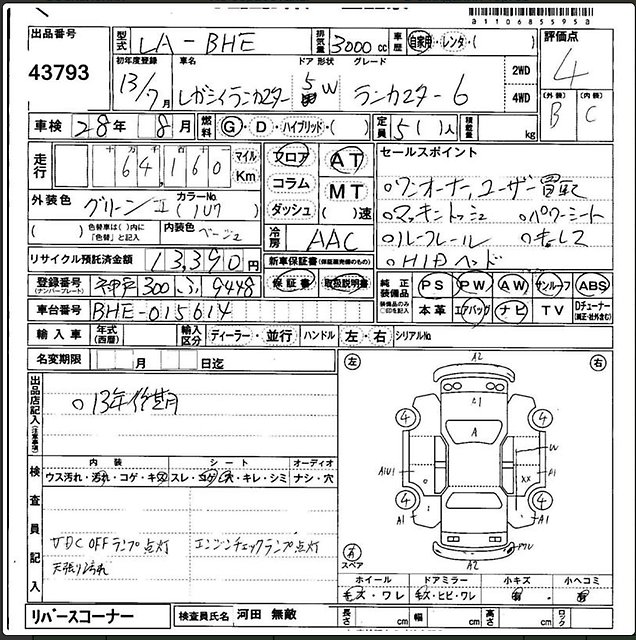 a11068559５8a
出品番号 43793
型式 LA-BHE 排気量 3000cc 車歴 自家用・レンタ・( )
評価点 4
(外装) B (内装) C
初年度登録 13/7月 車名 レガシィランカスター ドア 形状 5 W グレード ランカスター6 2WD 4WD
車検 28年 8月 燃料 G・D・ハイブリッド・( ) 定員 5( )人 積載量 kg
走行 十 万 千 百 十 一 64,160 マイル Km
フロア コラム ダッシュ
AT MT ( )速
セールスポイント
○ワンオーナー、ユーザー買取
○マッキントッシュ ○パワーシート
○ルーフレール ○キーレス
○HIDヘッド
外装色 グリーンII カラーNo. (1U7)
( ) 色替車は( )内に「色替」と記入 内装色 ベージュ
冷房 AAC
リサイクル預託済金額 13,390円
新車保証書(保証継続用のもの)
保証書 取扱説明書
登録番号 (ナンバープレート) 神戸 300 ふ 9448
車台番号 BHE-015614
純正装備品 装備品のみ○印を記入 PS PW AW サンルーフ ABS
本革 エアバッグ ナビ TV Dチューナー(純正・社外含む)
輸入車 年式(西暦) 輸入区分 ディーラー・並行 ハンドル 左・右 シリアルNo.
名変期限 月 日迄
出品店記入(注意事項)
○13年後期
検査員記入
内装 シート オーディオ
ウス汚れ・汚れ・コゲ・キズ スレ・コゲ・穴・キレ・シミ ナシ・穴
VDC OFFランプ点灯 エンジンチェックランプ点灯
天張り汚れ
左 右
A2
L1
4 4
A
W
AIU1 A1
XX
4 4
A1 A1
A
スペア
A2
ホイール ドアミラー 小キズ 小ヘコミ
キズ・ワレ キズ・ヒビ・ワレ 有 有
リバースコーナー 検査員氏名 河田 無敵 長さ cm 幅 cm 高さ cm ロック